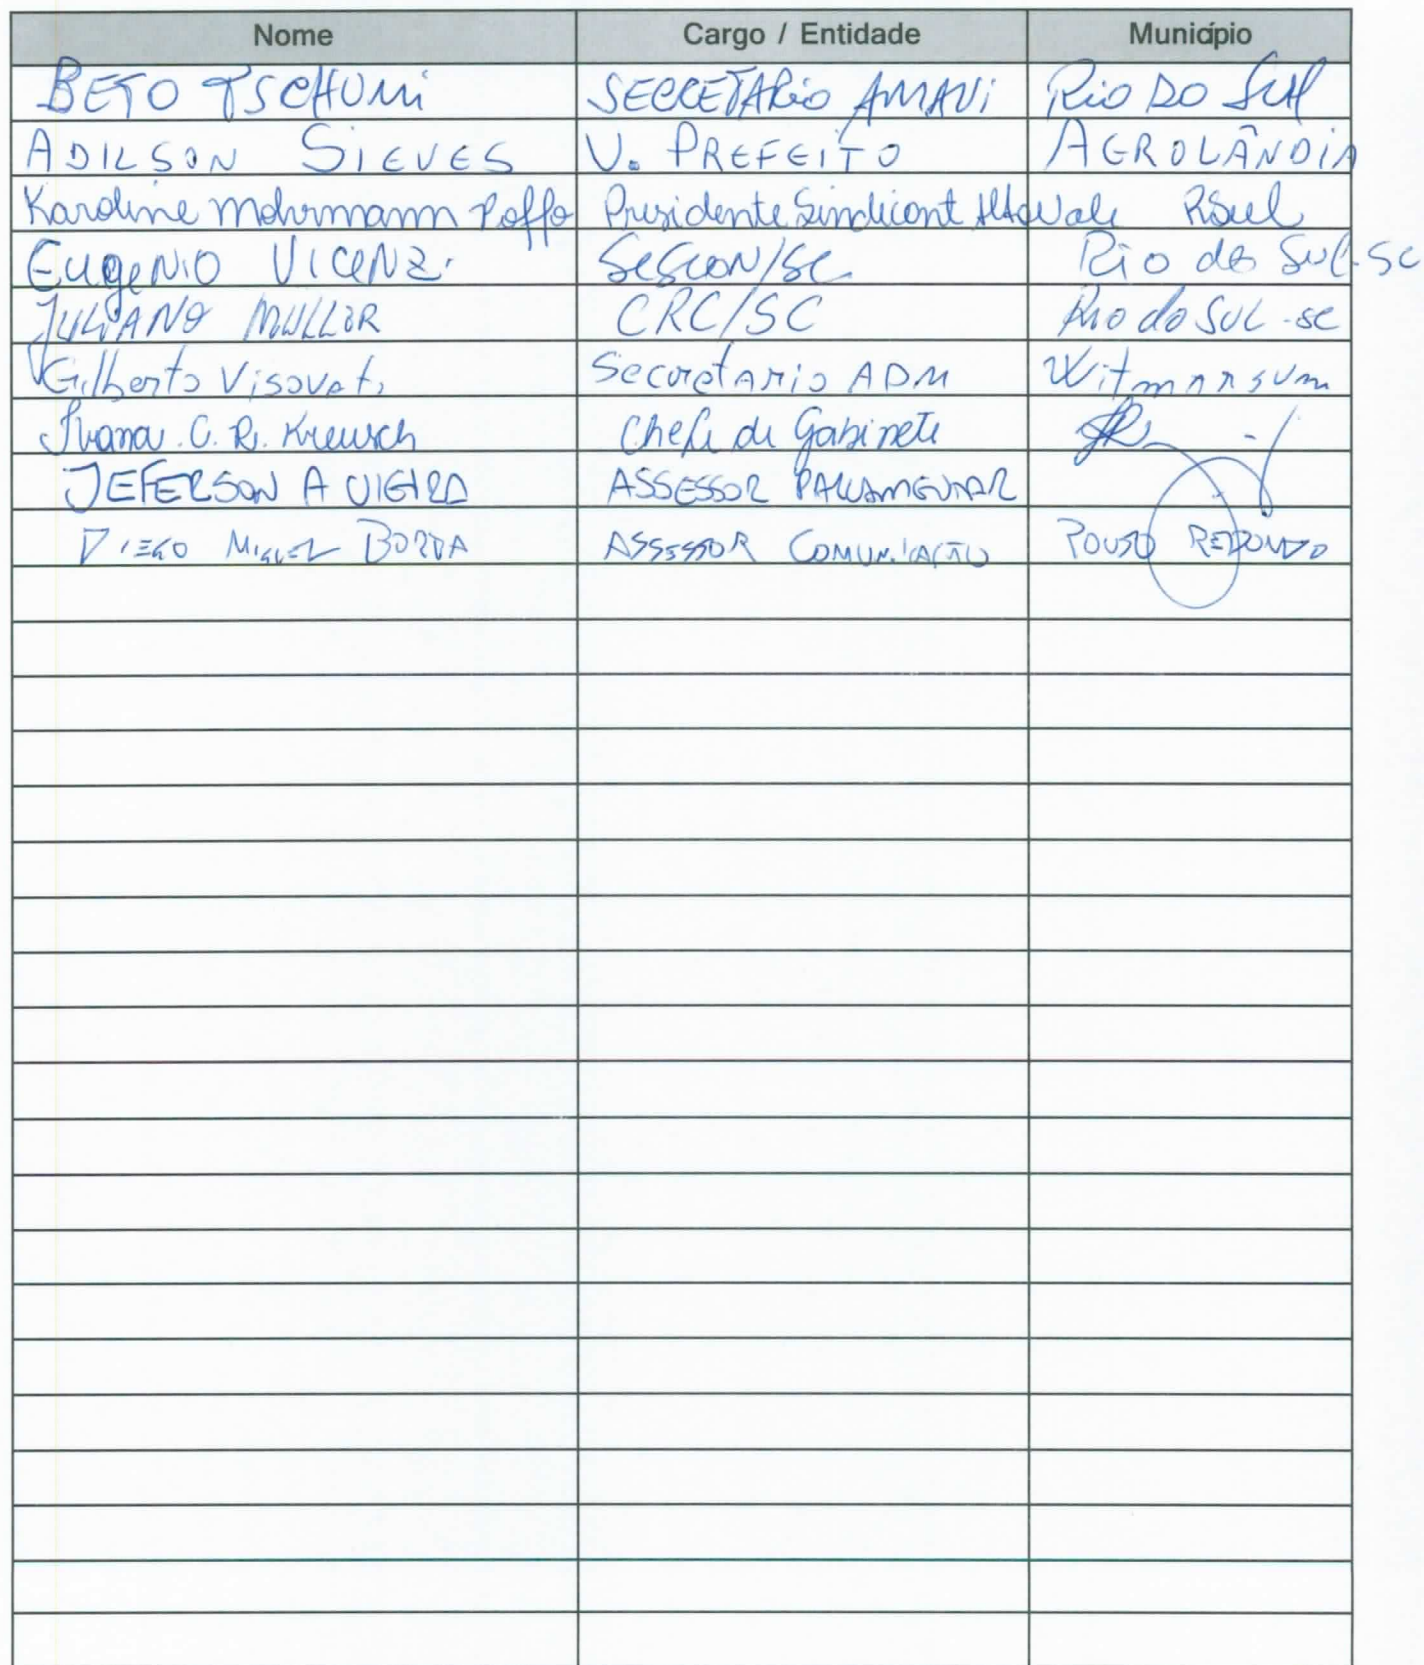 Nome Cargo / Entidade Município
BETO TSCHUMi SECRETARio AMAVi Rio DO SUL
ADILSON SIEVES V. PREFEITO AGROLÂNDIA
Karoline Mohrmann Poffo Presidente Sindicont Alto Vale RSul
EugeNiO VICENZi SESCON/SC Rio do Sul-SC
JULIANO MULLER CRC/SC Rio do SUL-SC
Gilberto Visovati Secretario ADM Witmarsum
Ivana C. R. Kreusch Chefe de Gabinete
JEFERSON A VIEIRA ASSESSOR PARLAMENTAR
DIEGO MIGUEL BORBA ASSESSOR COMUNICAÇÃO POUSO REDONDO